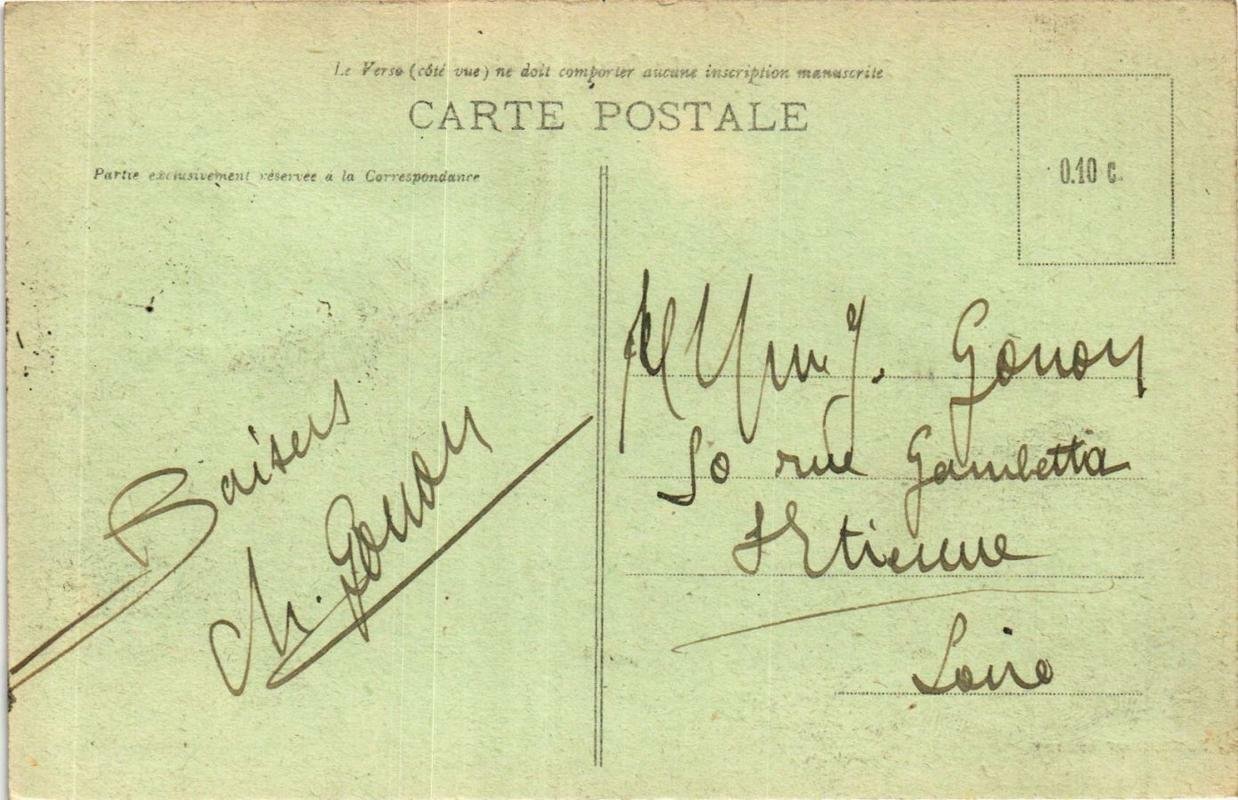 Le Verso (côté vue) ne doit comporter aucune inscription manuscrite
CARTE POSTALE
Partie exclusivement réservée à la Correspondance
0.10 c.
Baisers
Ch. Gonon
J. Gonon
50 rue Gambetta
St Etienne
Loire